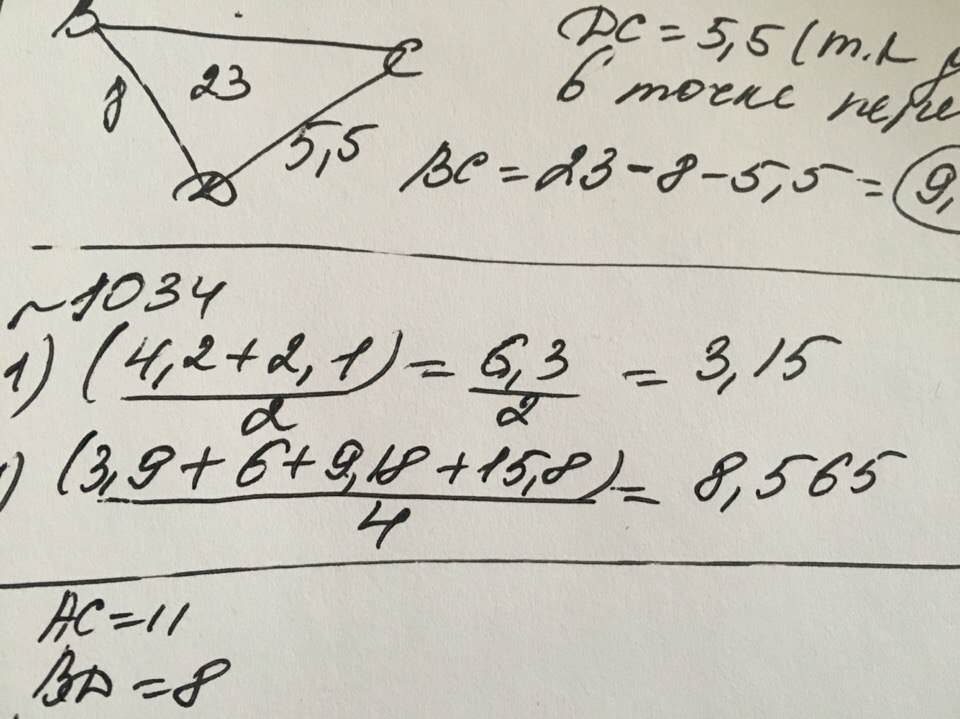 B
C
8
23
D
5,5
DC = 5,5 (т.к
в точке пере
BC = 23 - 8 - 5,5 = 9,
~1034
1) (4,2 + 2,1)/2 = 6,3/2 = 3,15
) (3,9 + 6 + 9,18 + 15,8)/4 = 8,565
AC = 11
BD = 8